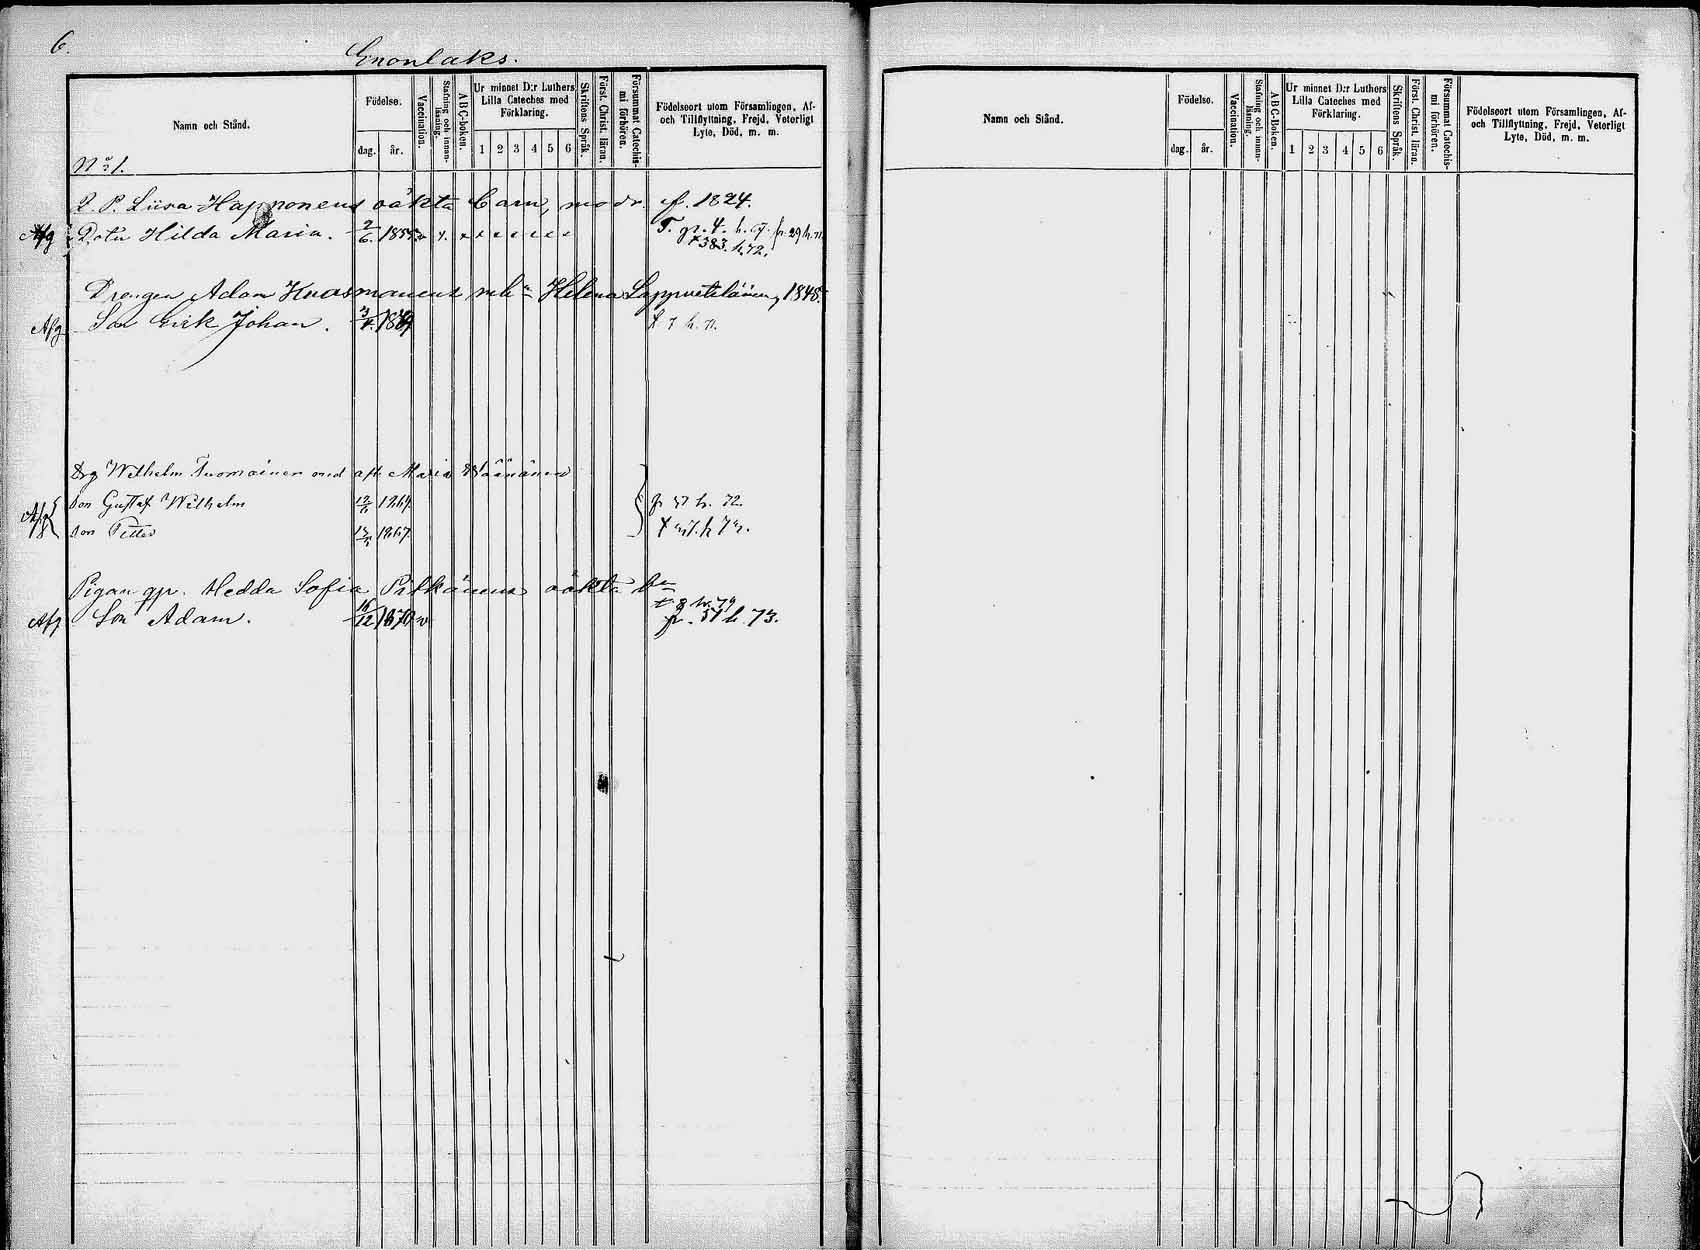 6.
Enonlaks.
Namn och Stånd.
Födelse.
dag. år.
Vaccination.
Stafning och innanläsning.
ABC-boken.
Ur minnet D:r Luthers Lilla Cateches med Förklaring.
1 2 3 4 5 6
Skriftens Språk.
Först. Christ. läran.
Försummat Catechismi förhören.
Födelseort utom Församlingen, Af- och Tillflyttning, Frejd, Veterligt Lyte, Död, m. m.
No 1.
Q. P. Liisa Happonens oäkta barn, modr f. 1824.
Afg Dotn Hilda Maria. 2/6. 1855 fr. 29 h. 71.
383. h. 72.
Drengen Adam Knasmanens Helena Lappveteläinen, 1848.
Afg Son Erik Johan. 1869
Drg Wilhelm Tuomainen Maria Väänänen
Afg Son Gustaf Wilhelm 1864. fr 57 h. 72.
Son Petter 1867.
Pigan qp. Hedda Sofia Pitkänens oäkta bn
8 h. 79
Afg Son Adam. 16/12 1870 v fr. 51 h. 73.
Namn och Stånd.
Födelse.
dag. år.
Vaccination.
Stafning och innanläsning.
ABC-Boken.
Ur minnet D:r Luthers Lilla Cateches med Förklaring.
1 2 3 4 5 6
Skriftens Språk.
Först. Christ. läran.
Försummat Catechismi förhören.
Födelseort utom Församlingen, Af- och Tillflyttning, Frejd, Veterligt Lyte, Död, m. m.